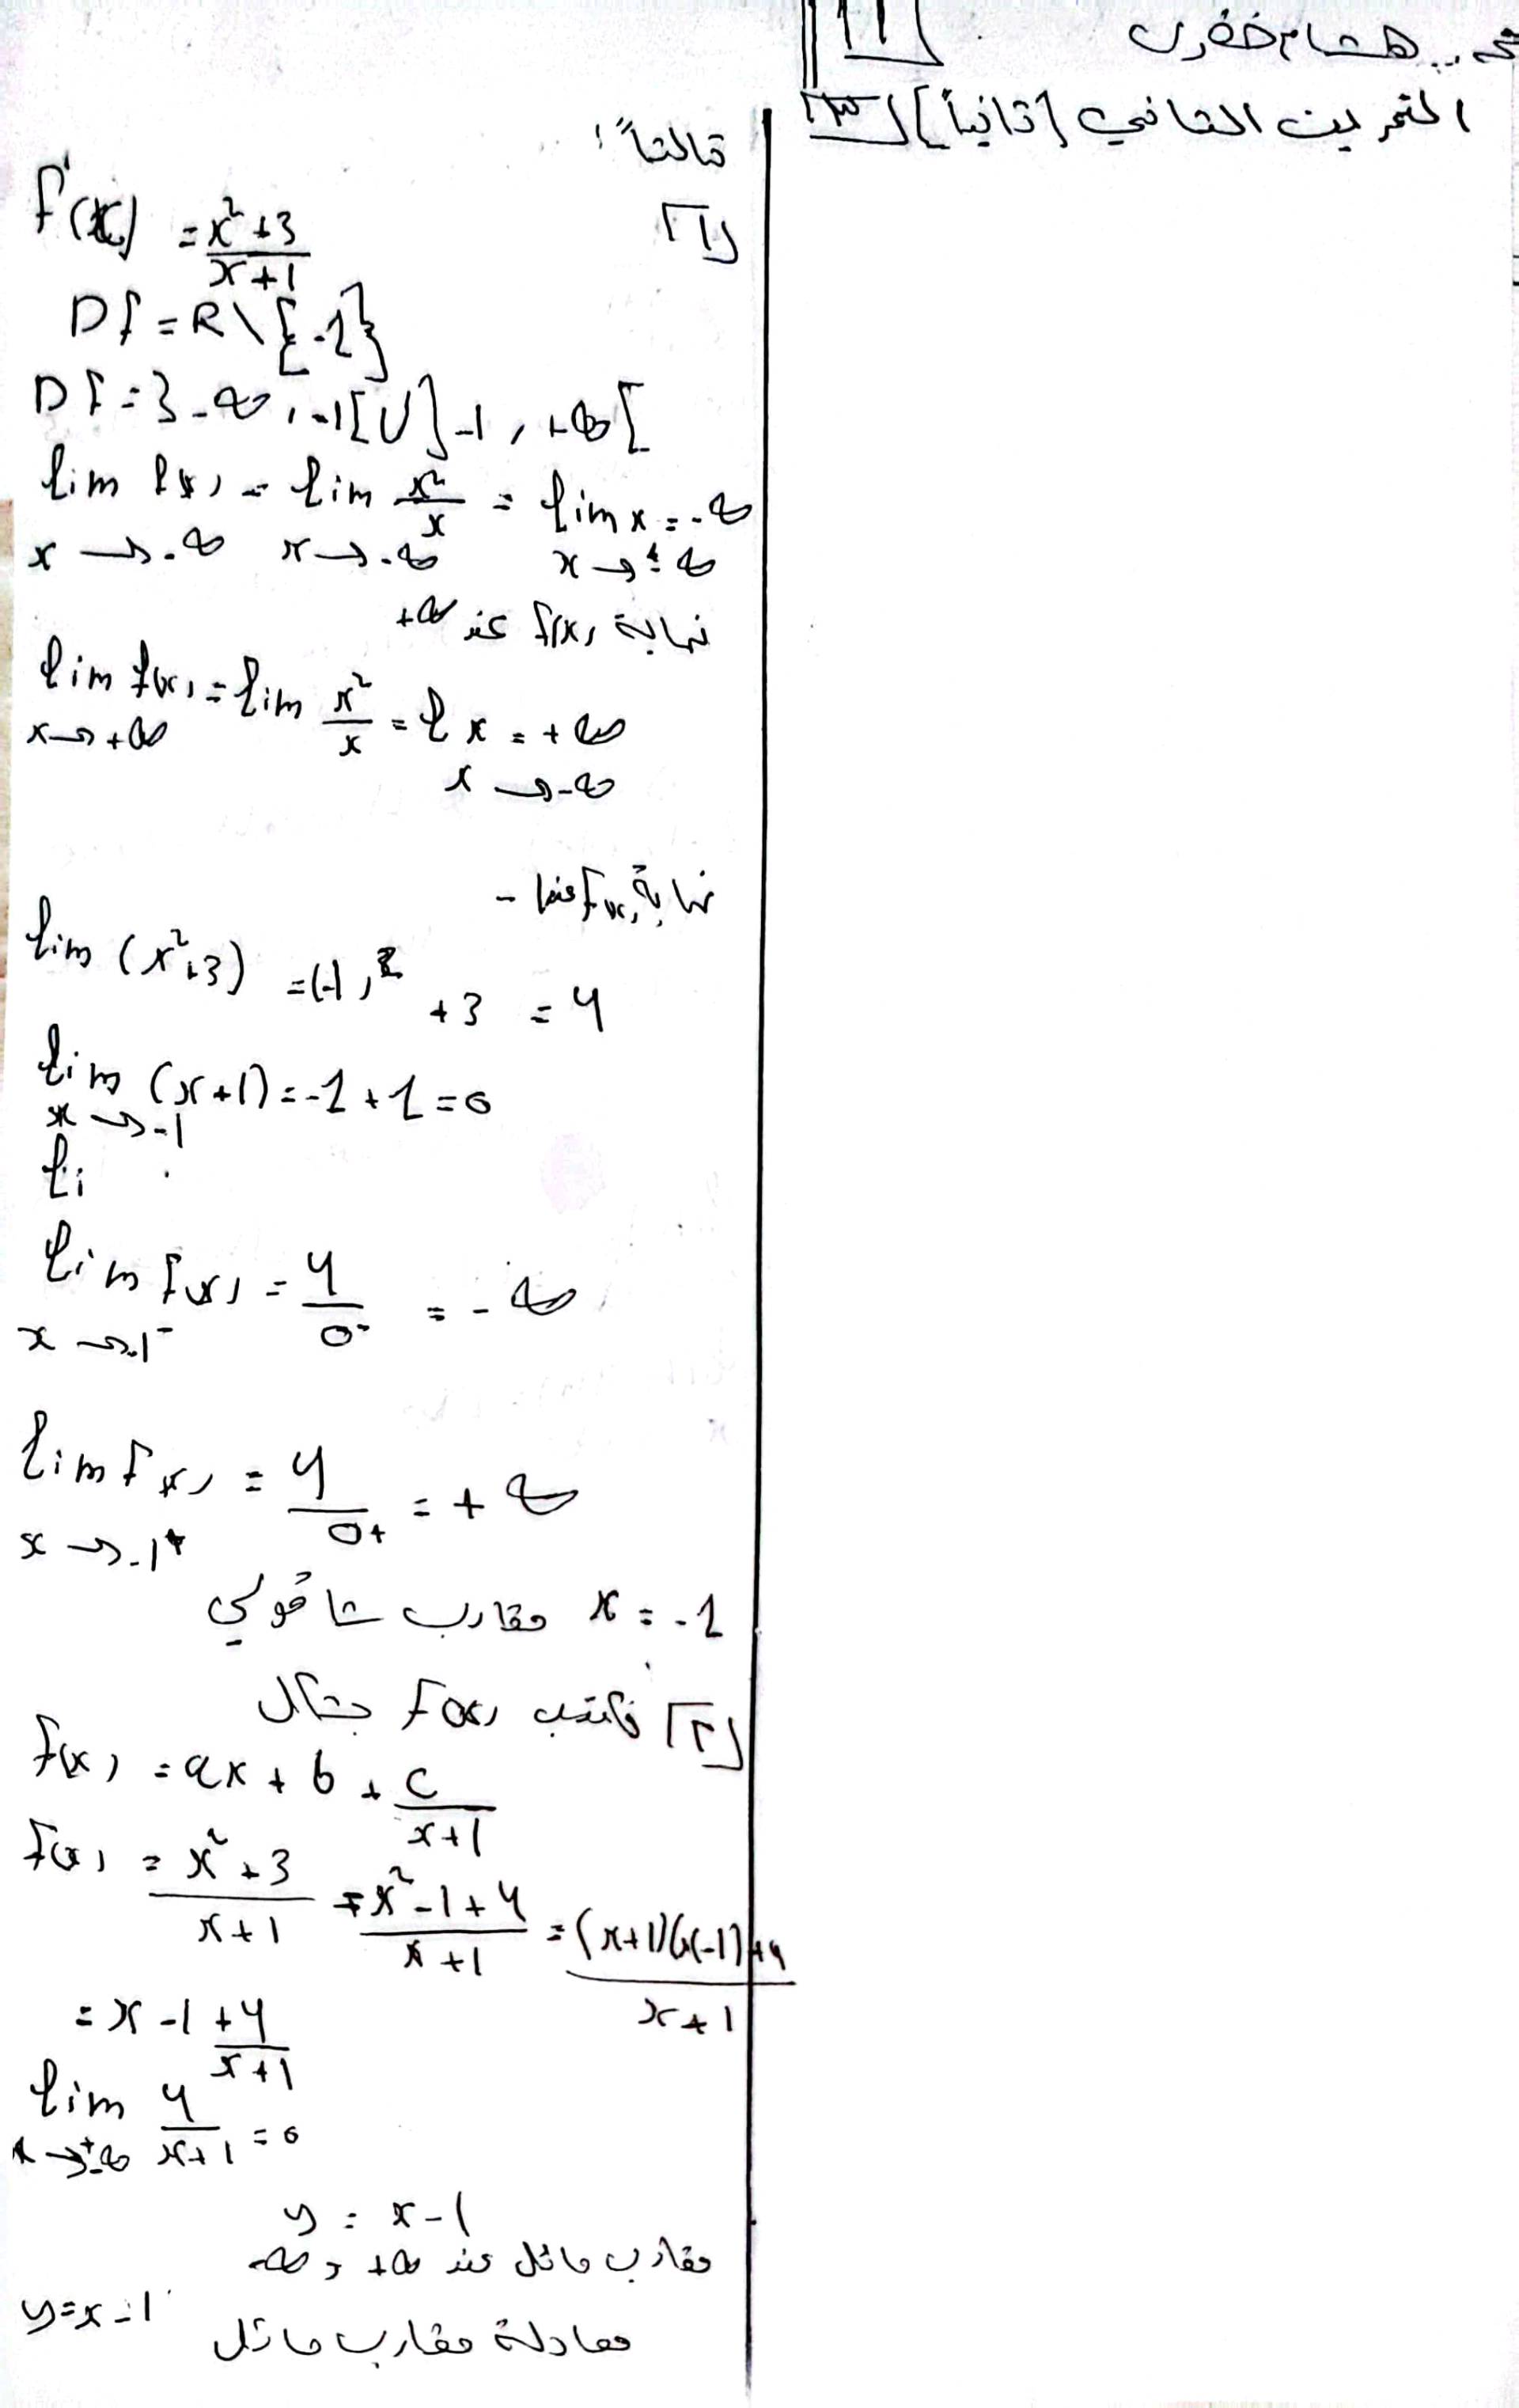 هشام خضر
التمرين الثاني [ثانياً] [3]
ثالثاً:
[1]
f(x) = x²+3 / x+1
Df = R \ {-1}
Df = ]-∞, -1[ U ]-1, +∞[
lim f(x) = lim x²/x = lim x = -∞
x → -∞ x → -∞ x → -∞
نهاية f(x) عند +∞
lim f(x) = lim x²/x = l x = +∞
x → +∞ x → -∞
نهاية f(x) عند -
lim (x²+3) = (-1)² + 3 = 4
lim (x+1) = -1 + 1 = 0
x → -1
li
lim f(x) = 4/0- = -∞
x → -1-
lim f(x) = 4/0+ = +∞
x → -1+
x = -1 مقارب شاقولي
[2] نكتب f(x) بشكل
f(x) = ax + b + c/x+1
f(x) = x²+3 / x+1 = x²-1+4 / x+1 = (x+1)(x-1)+4 / x+1
= x-1 + 4/x+1
lim 4/x+1 = 0
x → ±∞
y = x-1
مقارب مائل عند +∞ و -∞
y=x-1
معادلة مقارب مائل